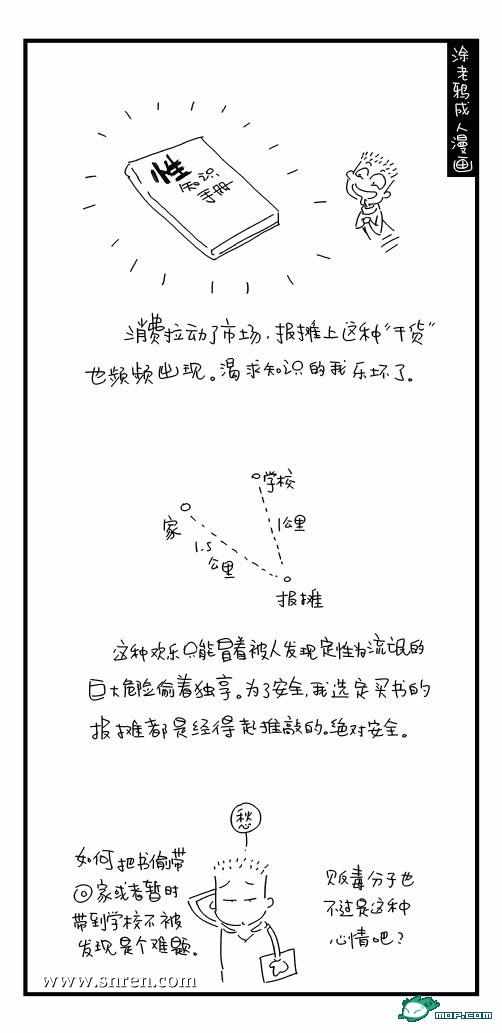 涂老鸦成人漫画
性
知识
手册
消费拉动了市场，报摊上这种“干货”
也频频出现。渴求知识的我乐坏了。
学校
家
1公里
1.5
公里
报摊
这种欢乐只能冒着被人发现定性为流氓的
巨大危险偷着独享。为了安全，我选定买书的
报摊都是经得起推敲的。绝对安全。
愁
如何把书偷带
回家或者暂时
带到学校不被
发现是个难题。
贩毒分子也
不过是这种
心情吧？
www.snren.com
mop.com